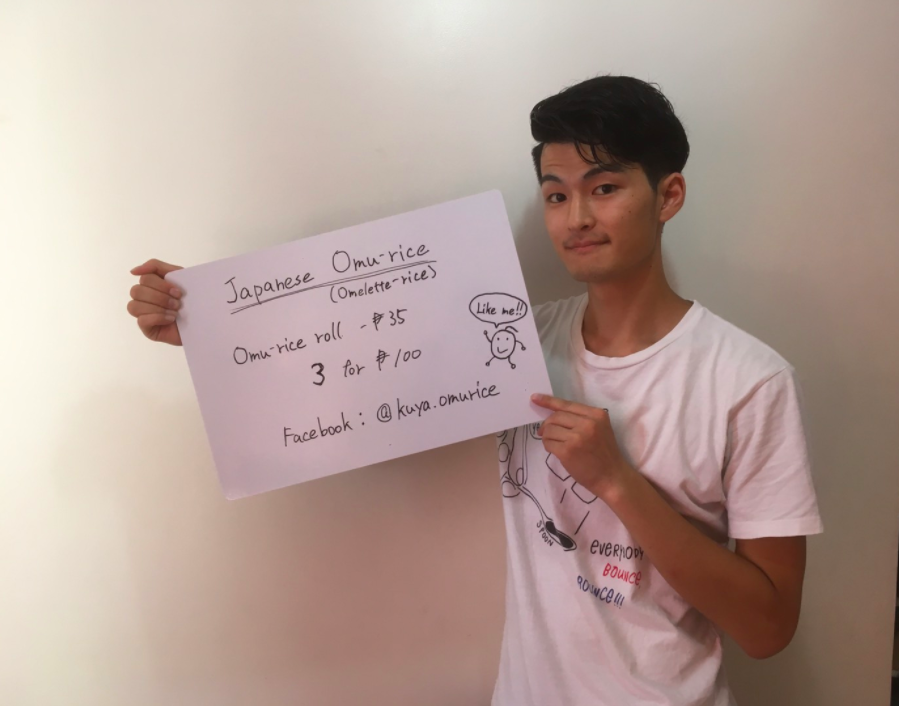 Japanese Omu-rice
(Omelette-rice)
Omu-rice roll - ₱35
3 for ₱100
Like me!!
Facebook : @kuya.omurice
SPOON
EVERYBODY
BOUNCE
BOUNCE!!!